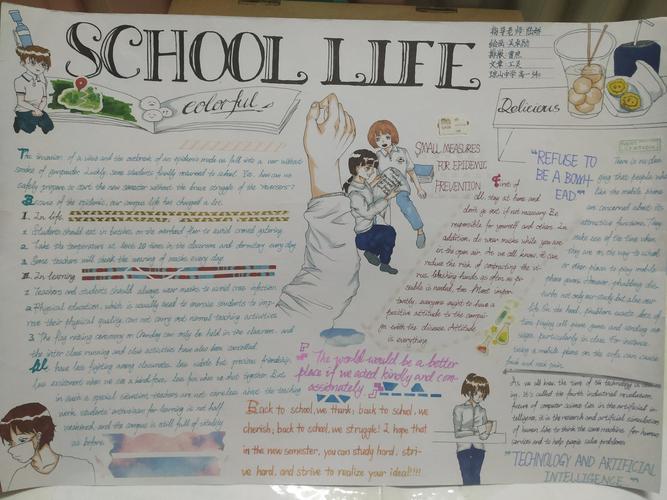 SCHOOL LIFE
colorful
Delicious
The invasion of a virus and the outbreak of an epidemic made us fall into a war without
smoke of gunpowder. Luckily, some students finally returned to school. So, how can we
safely prepare to start the new semester without the brave struggle of the
Because of the epidemic, our campus life has changed a lot.
I. In life
1. Students should eat in batches on the
to avoid crowd gathering
2. Take the temperature at least 10 times in the classroom and dormitory every day
3. Some teachers will
the wearing of masks every day
II. In learning
1. Teachers and students should always wear masks to avoid cross infection
2. Physical education, which is usually used to exercise students to imp-
rove their physical quality, can not carry out normal teaching activities
3. The flag raising ceremony on Monday can only be held in the classroom, and
the inter class running and
activities have also been cancelled.
We have less fighting among classmates, less
but precious friendship.
in such a special situation, teachers are not careless about the teaching
work, students' enthusiasm for learning is not half
weakened, and the campus is still full of vitality
as before.
SMALL MEASURES
FOR EPIDEMIC
PREVENTION
First of
all, stay at home and
don't go out if not necessary. Be
responsible for yourself and others. In
addition, do wear masks while you are
in the open air. As we all know, it can
reduce the risk of contracting the vi-
rus. Washing hands as often as po-
ssible is needed, too. Most impor-
tantly, everyone ought to have a
positive attitude to the campai-
gn with the disease. Attitude
is everything.
"REFUSE TO
BE A BOWH
EAD"
There is no den-
ying that people who
like the mobile phone
are concerned about its
attractive functions. They
make use of the time when
they are on the way to school
or other places to play mobile
phone games. However, phubbing dis-
turbs not only our study but also our
life. On the hand, phubbers waste lots of
time playing cell phone games and sending me-
ssages, particularly in class. For instance,
using a mobile phone on the sofa can cause
and neck pain.
The world would be a better
place if we acted kindly and com-
passionately
Back to school, we thank; back to school, we
cherish; back to school, we struggle! I hope that
in the new semester, you can study hard, stri-
ve hard, and strive to realize your ideal!!!!
As we all know, the time of
technology is com-
ing. It's called the fourth industrial revolution.
future of computer science lies in the artificial in-
telligence, it is the research and artificial simulation
of human
to think the same machine, for human
services and to help people solve problems.
"TECHNOLOGY AND ARTIFICIAL
INTELLIGENCE"